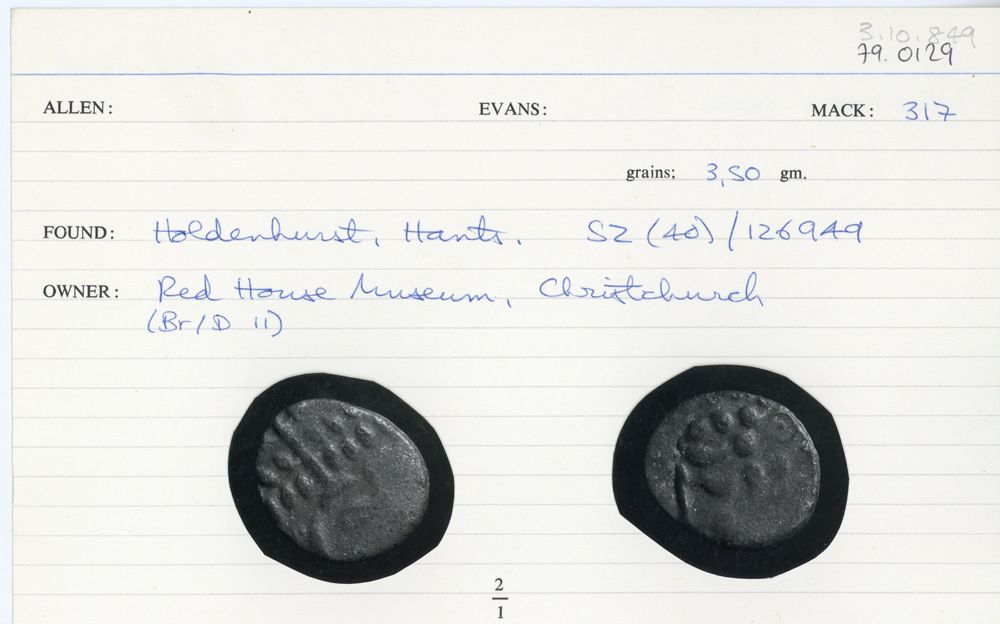 3.10.849
79.0129
ALLEN: EVANS: MACK: 317
grains; 3,50 gm.
FOUND: Holdenhurst, Hants. SZ (40) / 126949
OWNER: Red House Museum, Christchurch
(Br/D 11)
2
1